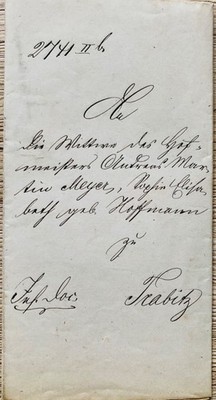 2741 II b
An
die Wittwe des Hof=
meisters Andreas Mar=
tin Meyer, Sophie Elisa=
beth geb. Hoffmann
zu
Trabitz